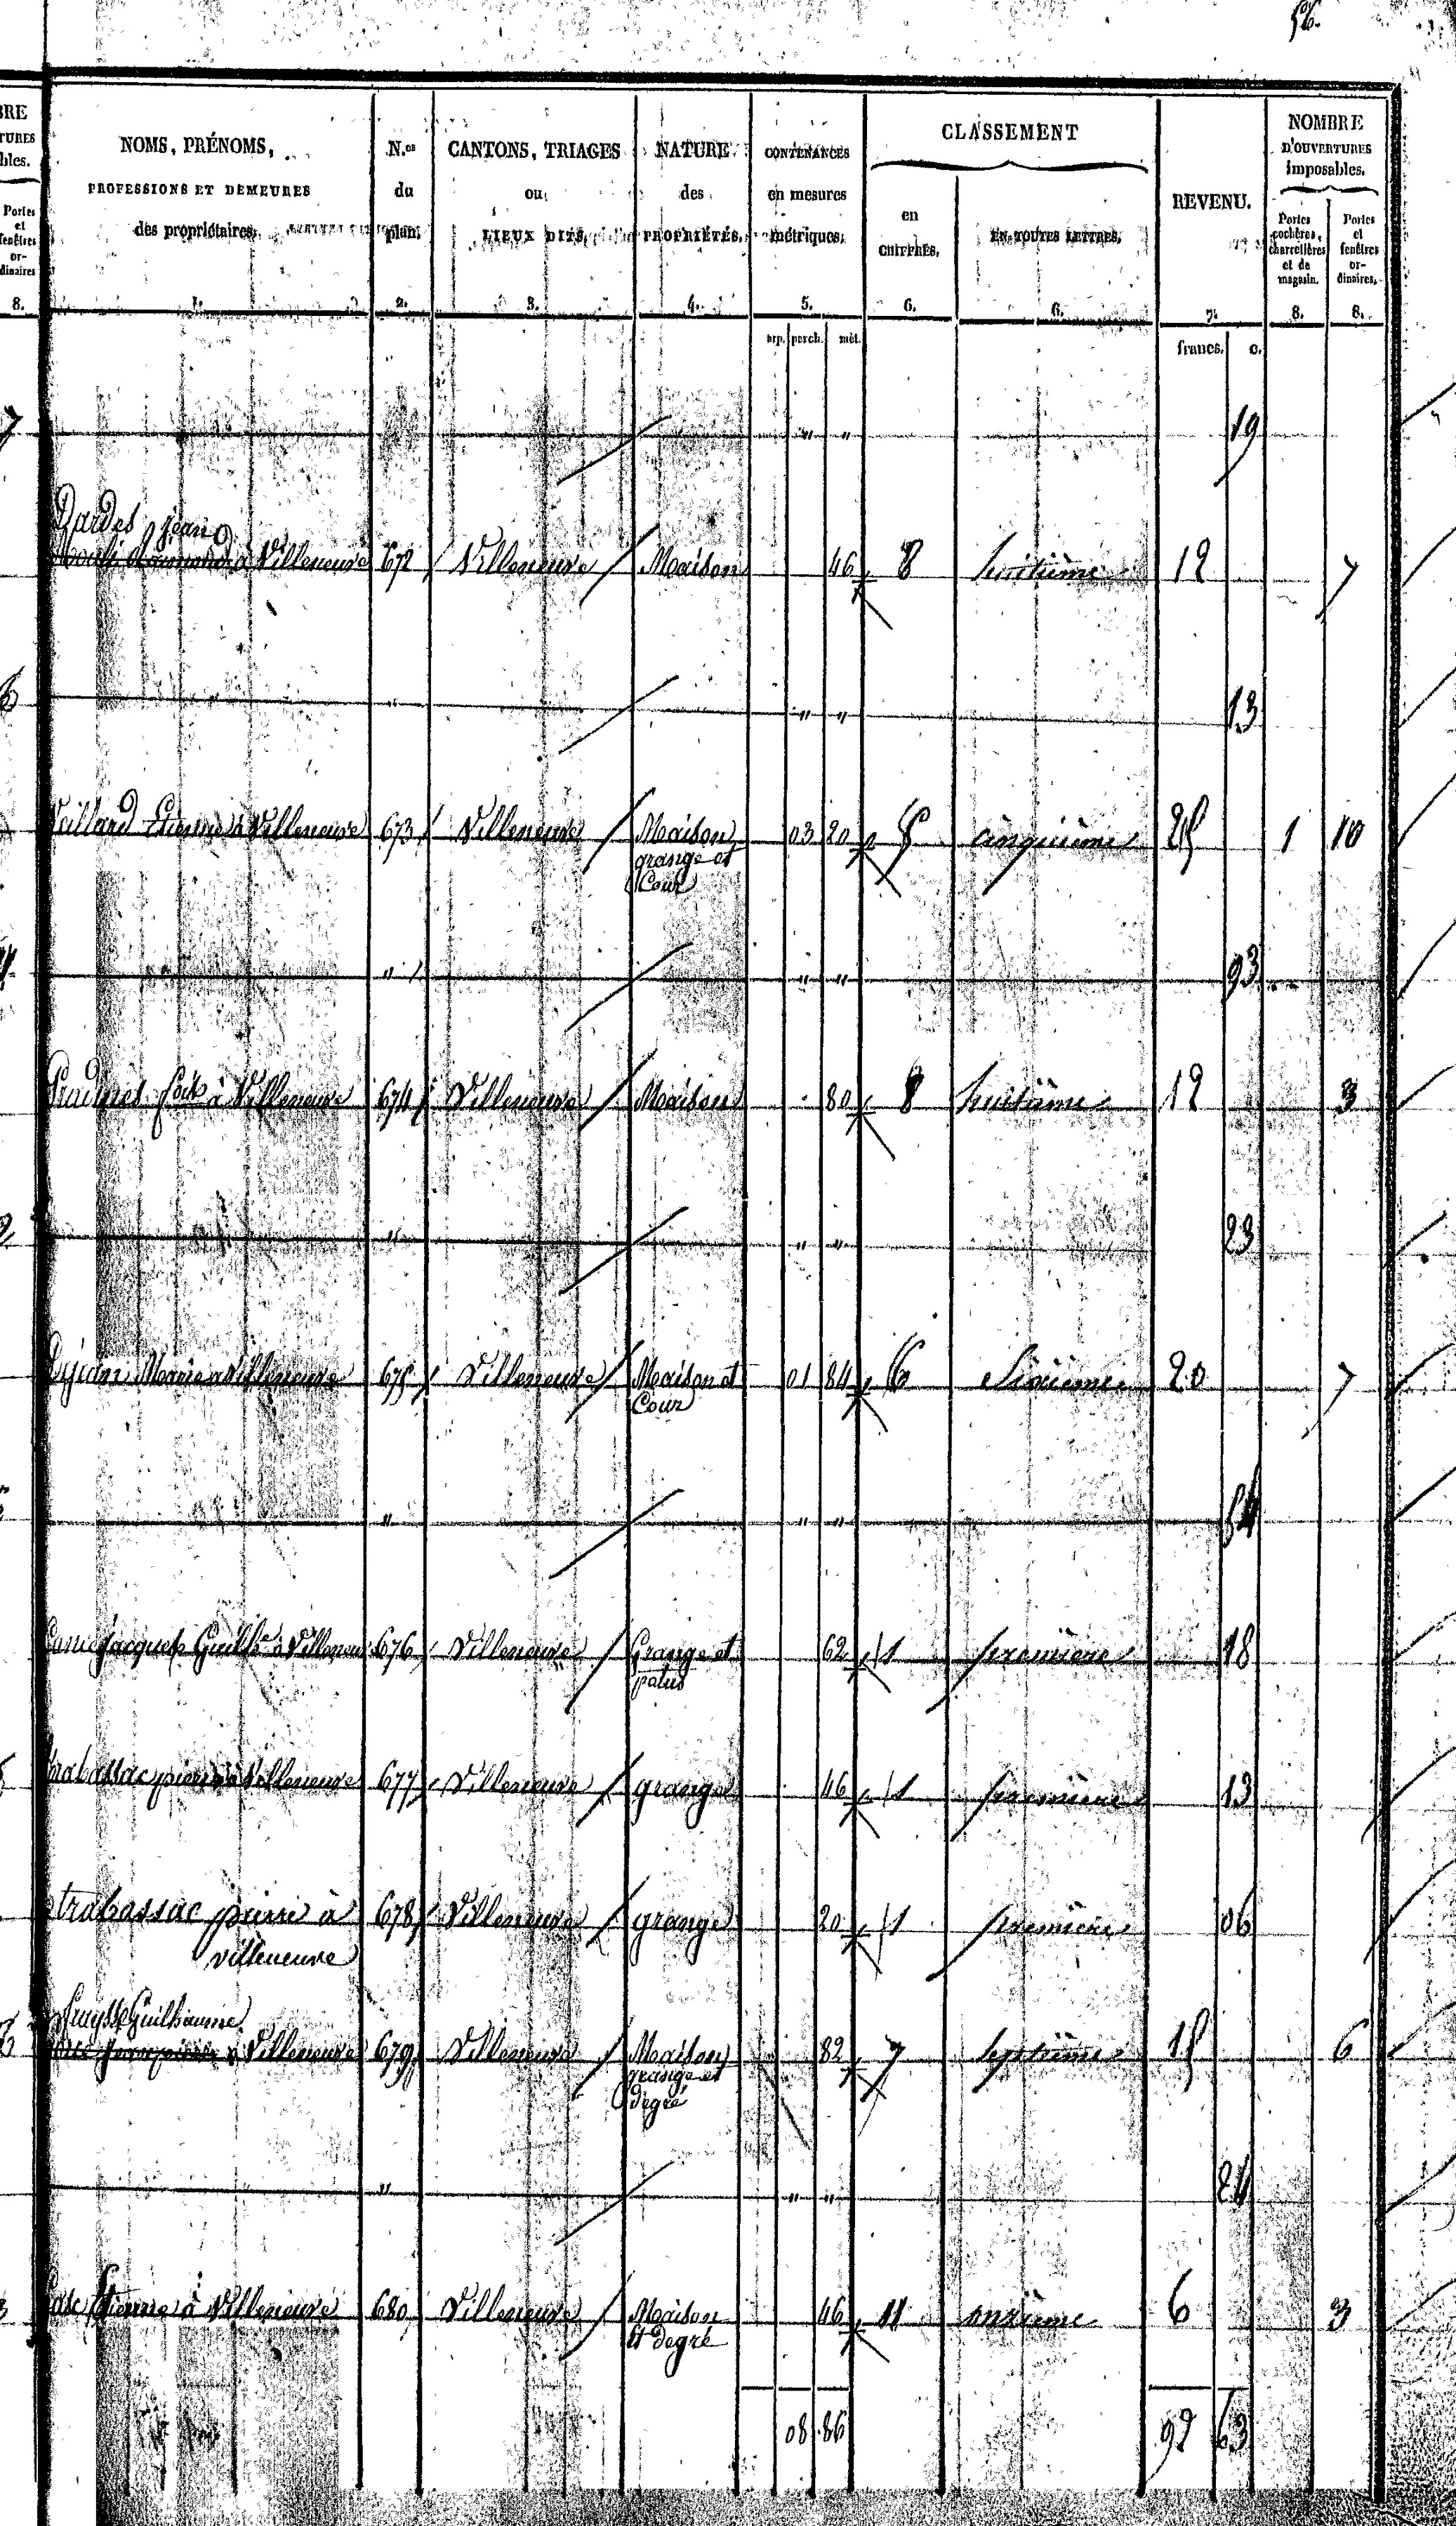 56.
BRE
TURES
bles.
Portes
et
fenêtres
or-
dinaires
8.
NOMS, PRÉNOMS,
PROFESSIONS ET DEMEURES
des propriétaires.
1.
N.os
du
plan.
2.
CANTONS, TRIAGES
ou
LIEUX DITS.
3.
NATURE
des
PROPRIÉTÉS.
4.
CONTENANCES
en mesures
métriques.
5.
arp. perch. mèt.
CLASSEMENT
en
CHIFFRES.
6.
EN TOUTES LETTRES.
6.
REVENU.
7.
francs. c.
NOMBRE
D'OUVERTURES
imposables.
Portes
cochères,
charretières
et de
magasin.
8.
Portes
et
fenêtres
or-
dinaires.
8.
" " 19
Dardes jean
à Villeneuve 672 Villeneuve Maison 46 8 huitième 12 7
" " " 13
Etienne à Villeneuve 673 Villeneuve Maison 03 20 5 cinquième 25 1 10
grange et
Cour
" " " 93
à Villeneuve 674 Villeneuve Maison 80 8 huitième 12 3
" " " 23
Dejean Marie à Villeneuve 675 Villeneuve Maison et 01 84 6 Sixième 20 7
Cour
" " " 54
676 Villeneuve Grange et 62 1 première 18
patus
trabassac pierre à Villeneuve 677 Villeneuve grange 46 1 première 13
trabassac pierre à 678 Villeneuve grange 20 1 première 06
villeneuve
Guilhaume
à Villeneuve 679 Villeneuve Maison 82 7 septième 15 6
grange et
degré
" " " 24
Etienne à Villeneuve 680 Villeneuve Maison 46 11 onzième 6 3
et degré
08 86 92 63